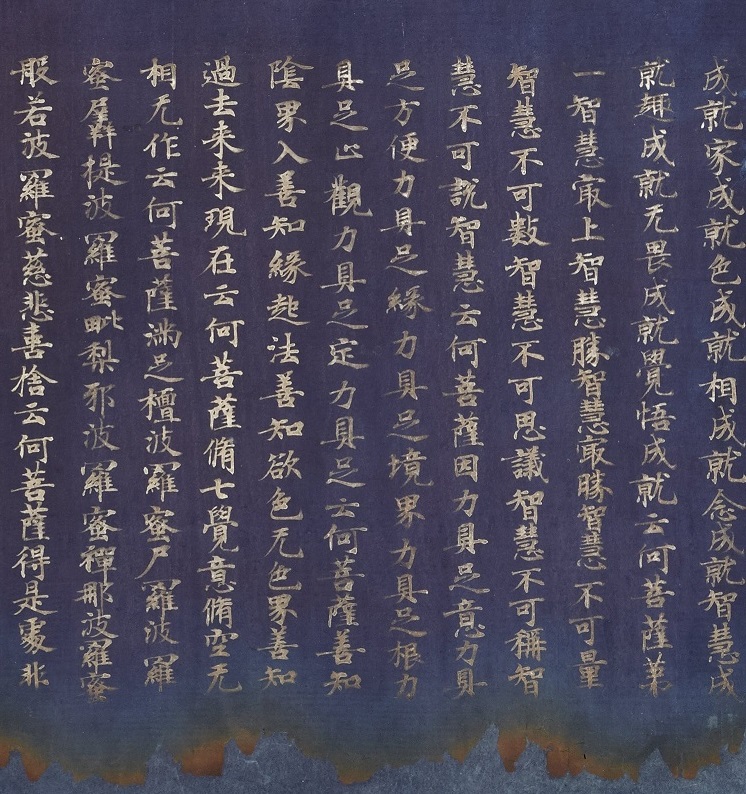 成就家成就色成就相成就念成就智慧成
就趣成就无畏成就覺悟成就云何菩薩苐
一智慧㝡上智慧勝智慧㝡勝智慧不可量
智慧不可數智慧不可思議智慧不可稱智
慧不可說智慧云何菩薩因力具足意力具
足方便力具足緣力具足境界力具足根力
具足止觀力具足定力具足云何菩薩善知
陰界入善知緣起法善知欲色无色界善知
過去未来現在云何菩薩脩七覺意脩空无
相无作云何菩薩滿足檀波羅蜜尸羅波羅
蜜羼提波羅蜜毗梨耶波羅蜜禪那波羅蜜
般若波羅蜜慈悲喜捨云何菩薩得是處非